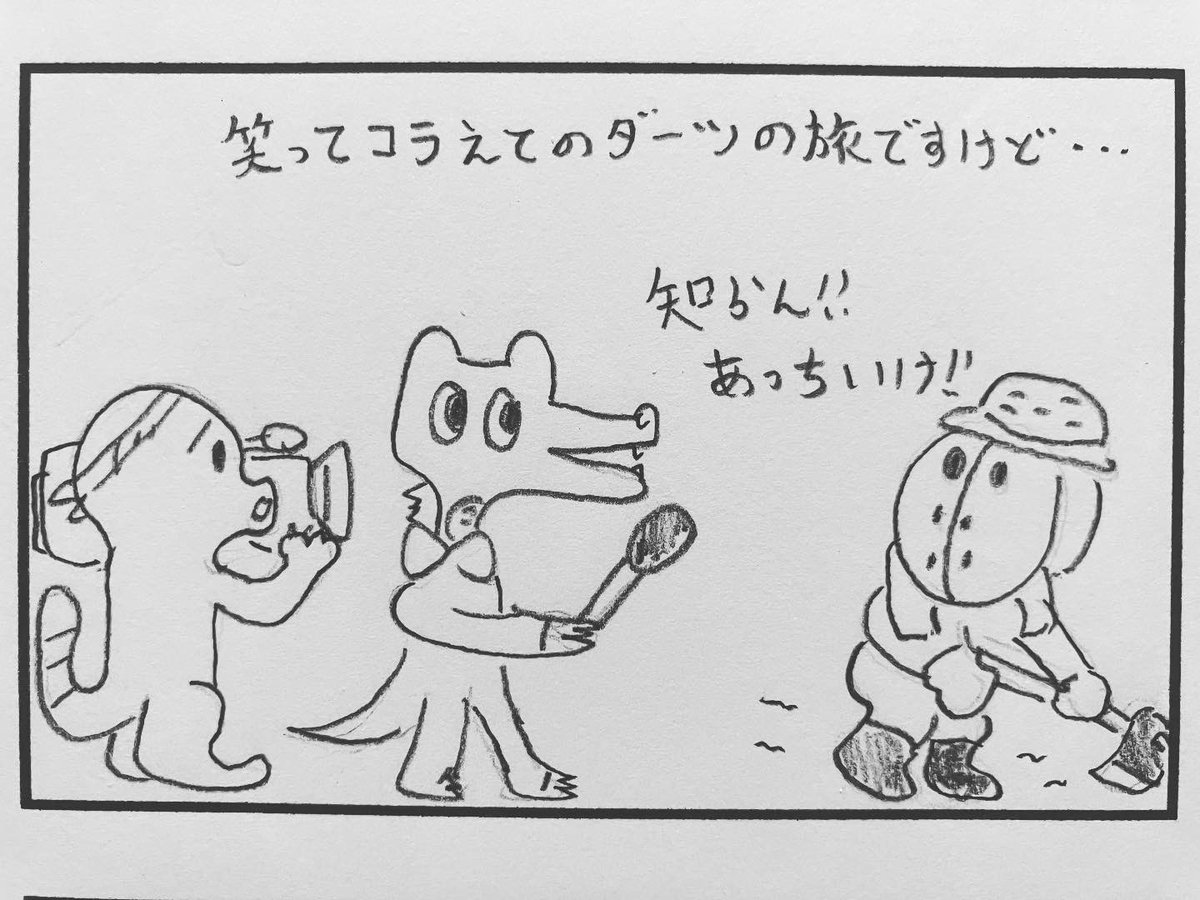 笑ってコラえてのダーツの旅ですけど・・・
知らん!!
あっちいけ!!